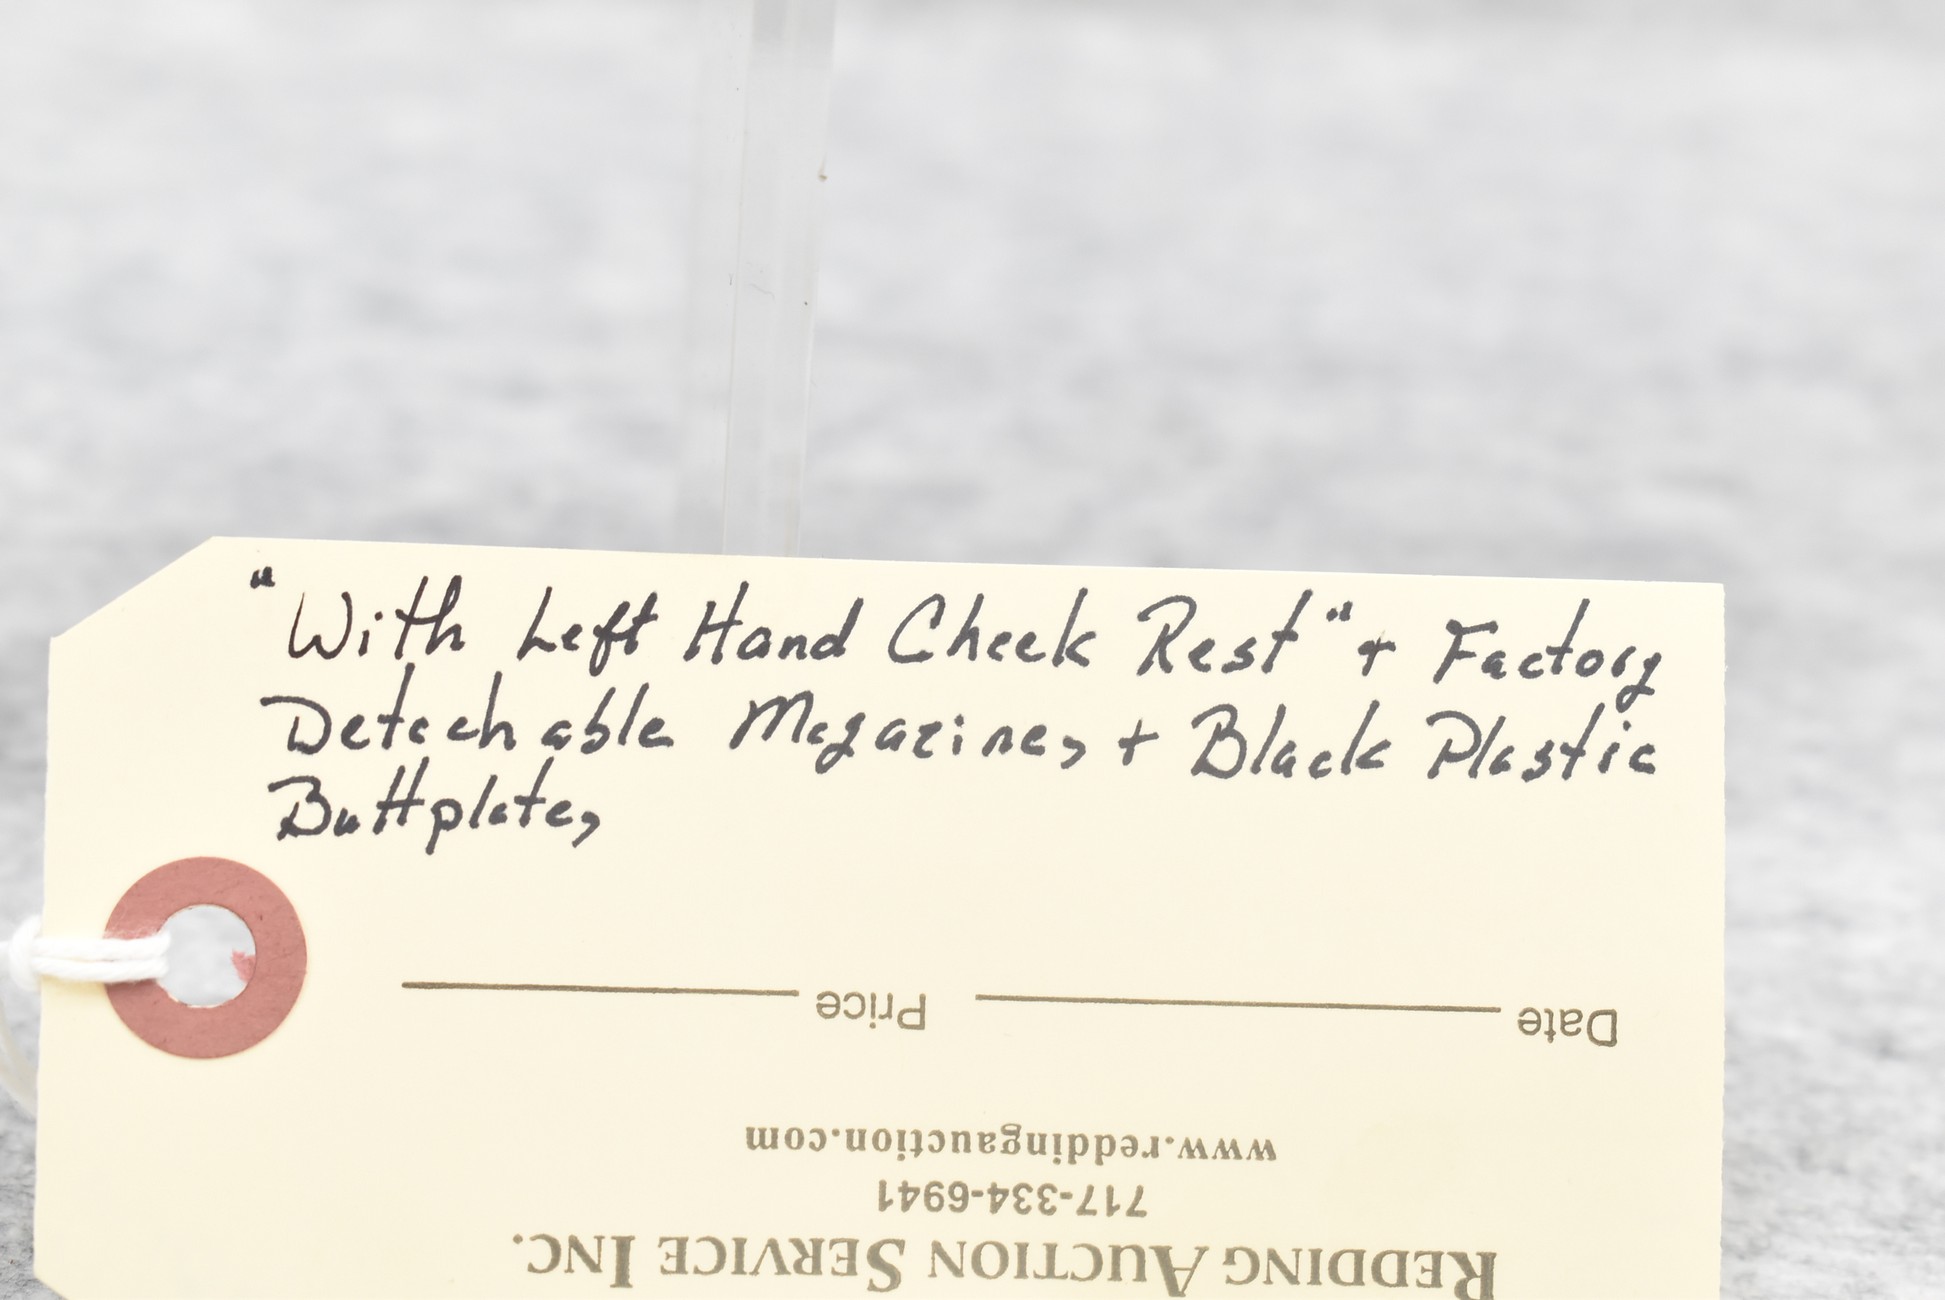 "With Left Hand Cheek Rest" + Factory
Detachable Magazine, + Black Plastic
Buttplate,
Redding Auction Service Inc.
717-334-6941
www.reddingauction.com
Date Price